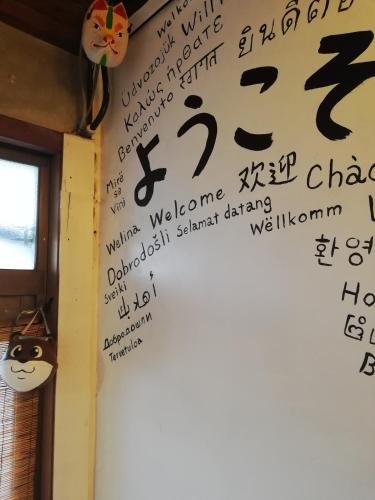 Will
Üdvözöljük
Καλώς ήρθατε
Benvenuto स्वागत
ยินดีต้อ
ようこそ
Mirë
se
Vini
Welina Welcome 欢迎 Chào
Dobrodošli Selamat datang
Wëllkomm
Sveiki
환영
أهلا
Добродошли
Tervetuloa
Ho